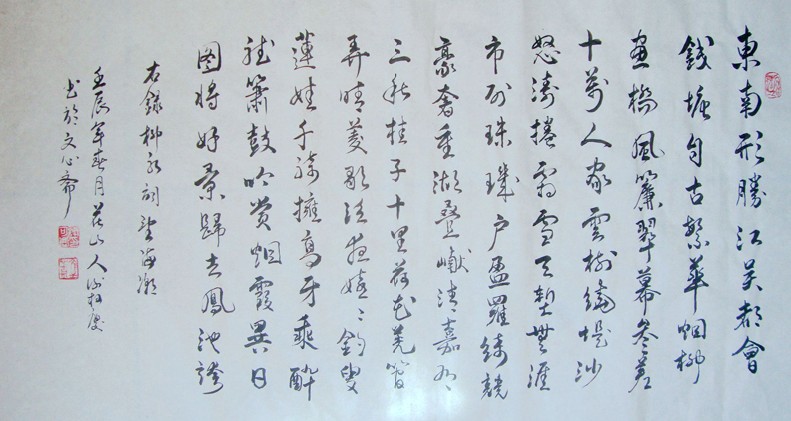 東南形勝江吴都會
錢塘自古繁華烟柳
畫橋風簾翠幕參差
十萬人家雲樹繞堤沙
怒濤捲霜雪天塹無涯
市列珠璣户盈羅綺競
豪奢重湖叠巘清嘉有
三秋桂子十里荷花羌管
弄晴菱歌泛夜嬉〻釣叟
蓮娃千騎擁高牙乘醉
聽簫鼓吟賞烟霞異日
圖將好景歸去鳳池誇
右録柳永詞望海潮
壬辰年春月花山人
书於文心齋